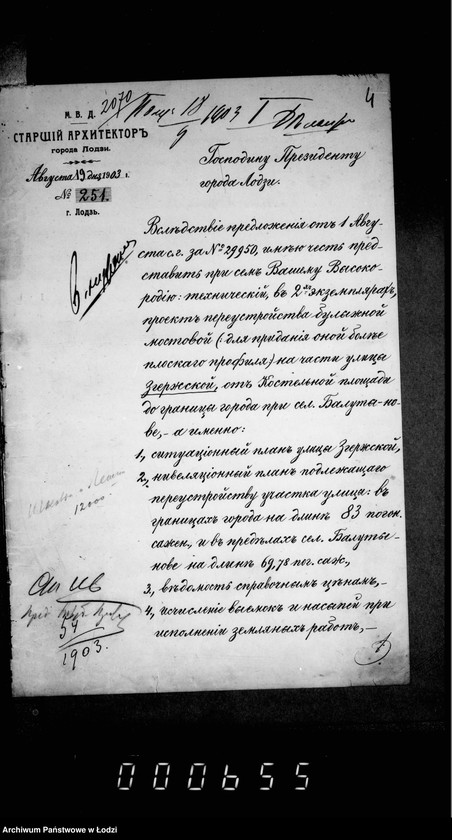 4
2070
18/9 1903 I
М. В. Д.
СТАРШІЙ АРХИТЕКТОРЪ
города Лодзи.
Августа 19 дня 1903 г.
№ 251.
г. Лодзь.
Господину Президенту
города Лодзи.
Вслѣдствіе предложенія отъ 1 Авгу-
ста с.г. за № 29950, имѣю честь пред-
ставить при семъ Вашему Высоко-
родію: техническій, въ 2хъ экземплярахъ,
проектъ переустройства булыжной
мостовой (: для приданія оной болѣе
плоскаго профиля) на части улицы
Згержской, отъ Костельной площади
до границы города при сел. Балуты-но-
ве, – а именно:
1, ситуаціонный планъ улицы Згержской,
2, нивеляціонный планъ подлежащаго
переустройству участка улицы: въ
границахъ города на длинѣ 83 погон.
сажен., и въ предѣлахъ сел. Балуты-
нове на длинѣ 69,78 пог. саж.,
3, вѣдомость справочнымъ цѣнамъ, –
4, исчисленіе выемокъ и насыпей при
исполненіи земляныхъ работъ, –
12000
59
1903.
000655
Archiwum Państwowe w Łodzi